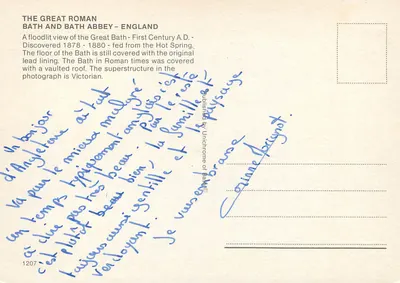 THE GREAT ROMAN
BATH AND BATH ABBEY - ENGLAND
A floodlit view of the Great Bath - First Century A.D. -
Discovered 1878 - 1880 - fed from the Hot Spring.
The floor of the Bath is still covered with the original
lead lining. The Bath in Roman times was covered
with a vaulted roof. The superstructure in the
photograph is Victorian.
Un bonjour
d'Angleterre où tout
va pour le mieux malgré
un temps typiquement anglais c'est
à dire pas très beau. Par le reste
c'est plutôt beau bien. la famille est
toujours aussi gentille et le paysage
verdoyant.
Je vous embrasse
Corinne
Published by Unichrome of Bath
1207